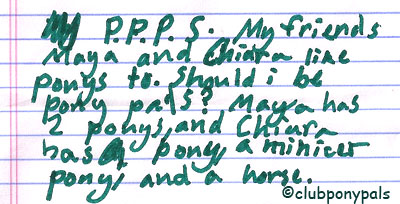 P.P.P.S. My friends
Maya and Chiara like
ponys to. Should i be
pony pals? Maya has
2 ponys, and Chiara
has a pony, a minicer
pony, and a horse.
©clubponypals